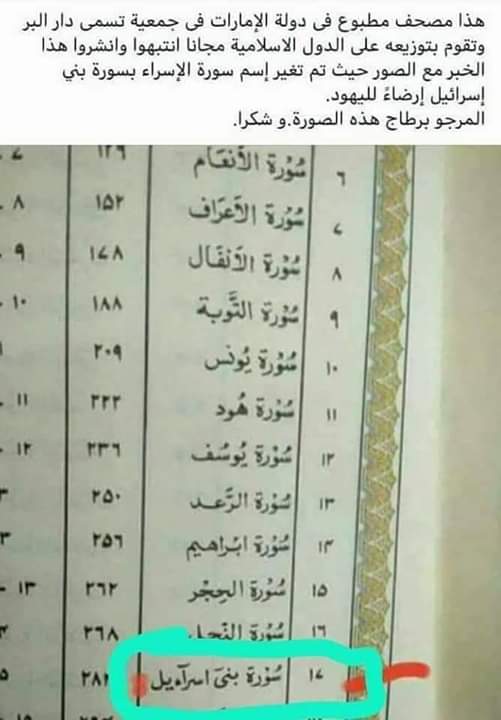 هذا مصحف مطبوع فى دولة الإمارات فى جمعية تسمى دار البر
وتقوم بتوزيعه على الدول الاسلامية مجانا انتبهوا وانشروا هذا
الخبر مع الصور حيث تم تغير إسم سورة الإسراء بسورة بني
إسرائيل إرضاءً لليهود.
المرجو برطاج هذه الصورة.و شكرا.
٦ سُوْرَة الأنعَام ١٢٩
٧ سُوْرَة الأعرَاف ١٥٢ ٨
٨ سُوْرَة الأنفَال ١٧٨ ٩
٩ سُوْرَة التَّوبَة ١٨٨ ١٠
١٠ سُوْرَة يُونس ٢٠٩
١١ سُوْرَة هُود ٢٢٢ ١١
١٢ سُوْرَة يُوسُف ٢٣٦ ١٢
١٣ سُوْرَة الرَّعد ٢٥٠
١٤ سُوْرَة ابراهيم ٢٥٦
١٥ سُوْرَة الحِجْر ٢٦٢ ١٣
١٦ سُوْرَة النَّحل ٢٦٨
١٧ سُوْرَة بنىٓ اسرآءيل